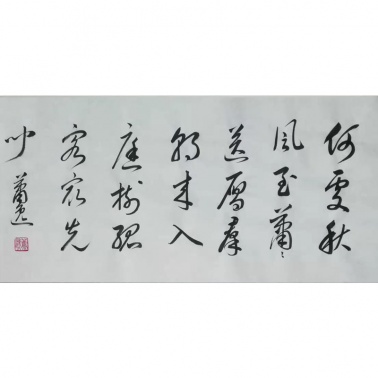 何處秋
風至蕭〻
送雁群
朝來入
庭樹孤
客最先
聞 蕭逸